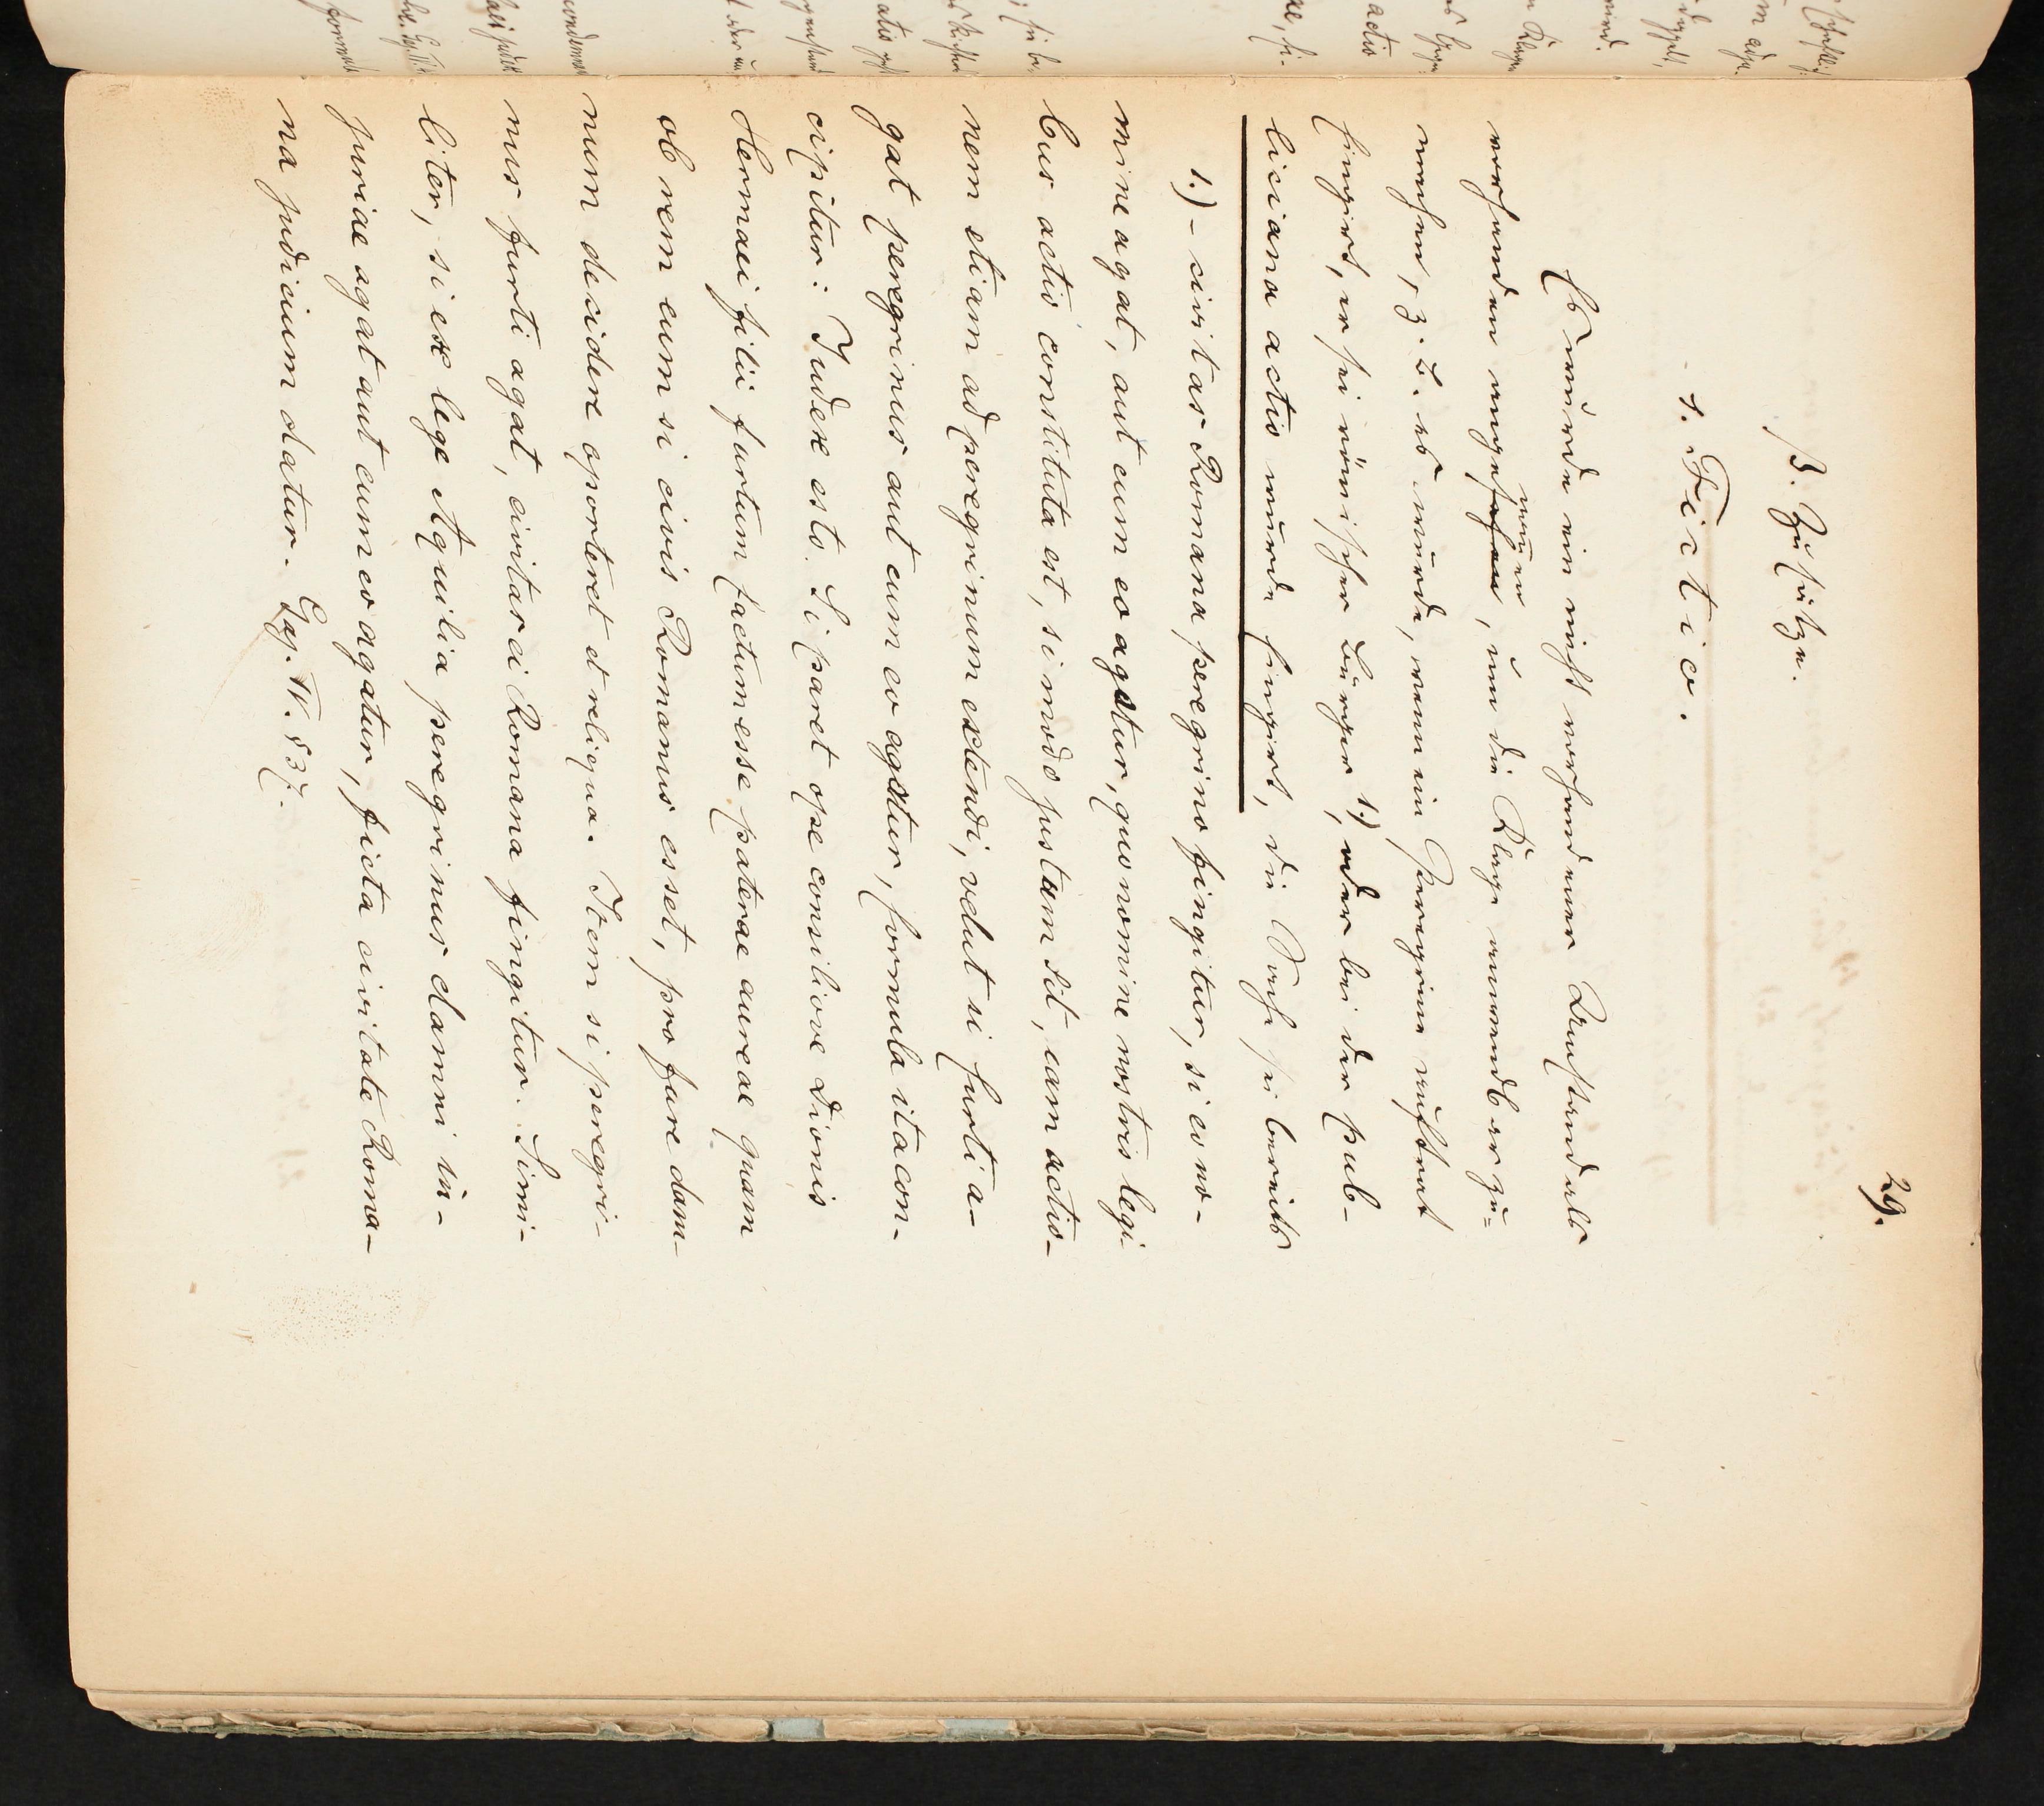 29.
β. Zusätze.
1. Fictio.
Es wurde ein nicht vorhandener Thatbestand als
vorhanden angesehen
nommen
, um die Klage anwendbar zu=
machen, z. B. es wurde, wenn ein Peregrine auftrat
fingirt, er sei römischer Bürger 1.), oder bei der pub-
liciana actio wurde fingirt, die Sache sei bereits
1.) - civitas Romana peregrino fingitur, si eo no-
mine agat, aut cum eo agatur, quo nomine nostris legi-
bus actio constituta est, si modo justum sit, eam actio-
nem etiam ad peregrinum extendi, velut si furti a-
gat peregrinus aut cum eo agatur, formula ita con-
cipitur: Judex esto. Si paret ope consiliove Dionis
Hermaei filii furtum factum esse paterae aureae quam
ob rem eum si civis Romanus esset, pro fure dam-
num decidere oporteret et reliqua. Item si peregri-
nus furti agat, civitas ei Romana fingitur. Simi-
liter, si ex lege Aquilia peregrinus damni in-
juriae agat aut cum eo agatur, ficta civitate Roma-
na judicium datur. Gaj. IV. § 37.